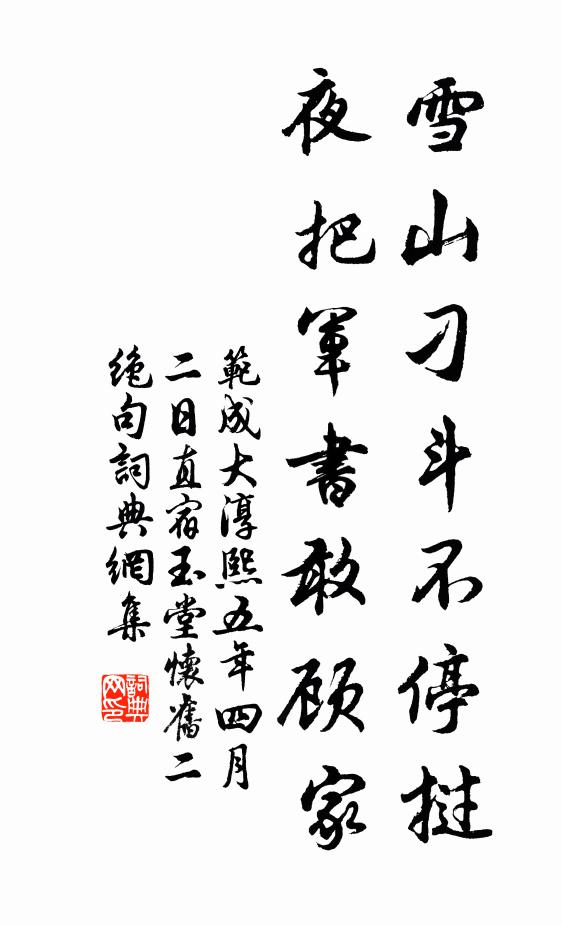 雪山刁斗不停撾
夜把軍書敢顾家
範成大淳熙五年四月
二日直宿玉堂懷舊二
絶句詞典網集
詞典
网印